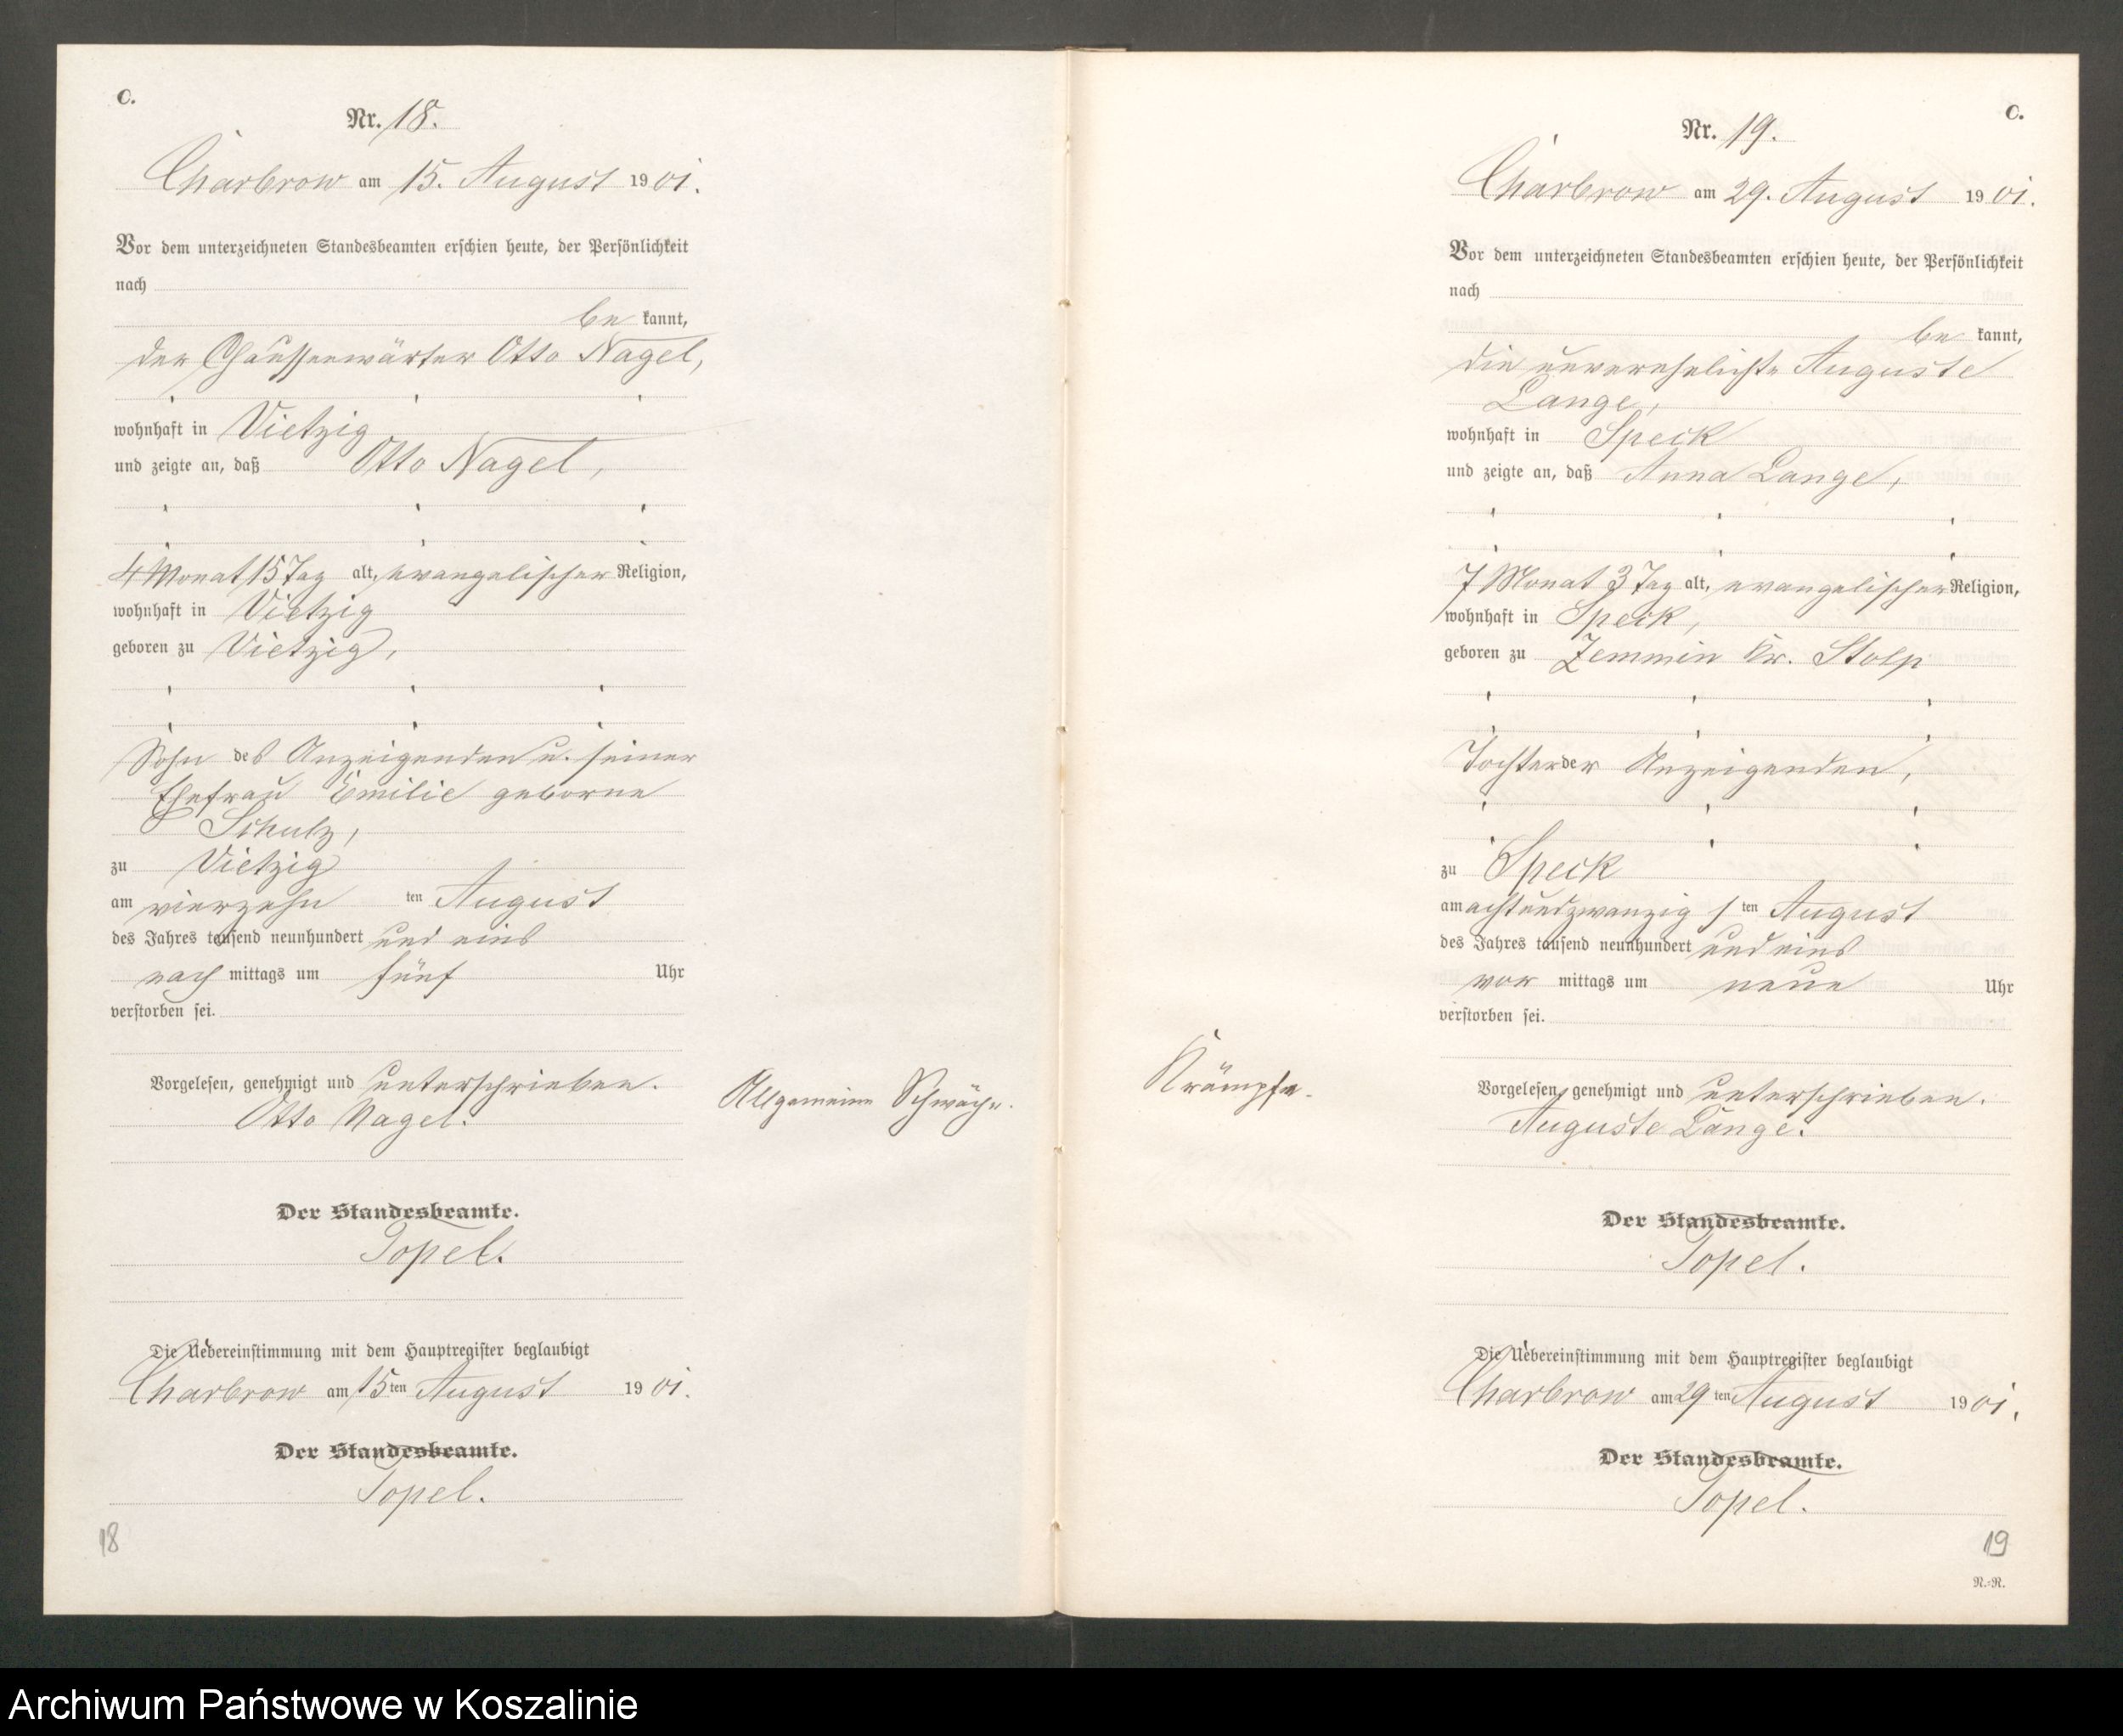 C.
Nr. 18.
Charbrow am 15. August 1901.
Vor dem unterzeichneten Standesbeamten erschien heute, der Persönlichkeit
nach
be kannt,
der Chausseewärter Otto Nagel,
wohnhaft in Vietzig
und zeigte an, daß Otto Nagel,
4 Monat 15 Tag alt, evangelischer Religion,
wohnhaft in Vietzig
geboren zu Vietzig,
Sohn des Anzeigenden u. seiner
Ehefrau Emilie geborne
Schulz,
zu Vietzig
am vierzehn ten August
des Jahres tausend neunhundert und eins
nach mittags um fünf Uhr
verstorben sei.
Vorgelesen, genehmigt und unterschrieben.
Otto Nagel.
Allgemeine Schwäche.
Der Standesbeamte.
Topel.
Die Uebereinstimmung mit dem Hauptregister beglaubigt
Charbrow am 15ten August 1901.
Der Standesbeamte.
Topel.
18
C.
Nr. 19.
Charbrow am 29. August 1901.
Vor dem unterzeichneten Standesbeamten erschien heute, der Persönlichkeit
nach
be kannt,
die unverehelichte Auguste
Lange,
wohnhaft in Speck
und zeigte an, daß Anna Lange,
7 Monat 3 Tag alt, evangelischer Religion,
wohnhaft in Speck,
geboren zu Zemmin Kr. Stolp
Tochter der Anzeigenden,
zu Speck
am achtundzwanzig s ten August
des Jahres tausend neunhundert und eins
vor mittags um neun Uhr
verstorben sei.
Krämpfe.
Vorgelesen, genehmigt und unterschrieben.
Auguste Lange.
Der Standesbeamte.
Topel.
Die Uebereinstimmung mit dem Hauptregister beglaubigt
Charbrow am 29 ten August 1901.
Der Standesbeamte.
Topel.
19
N.=N.
Archiwum Państwowe w Koszalinie